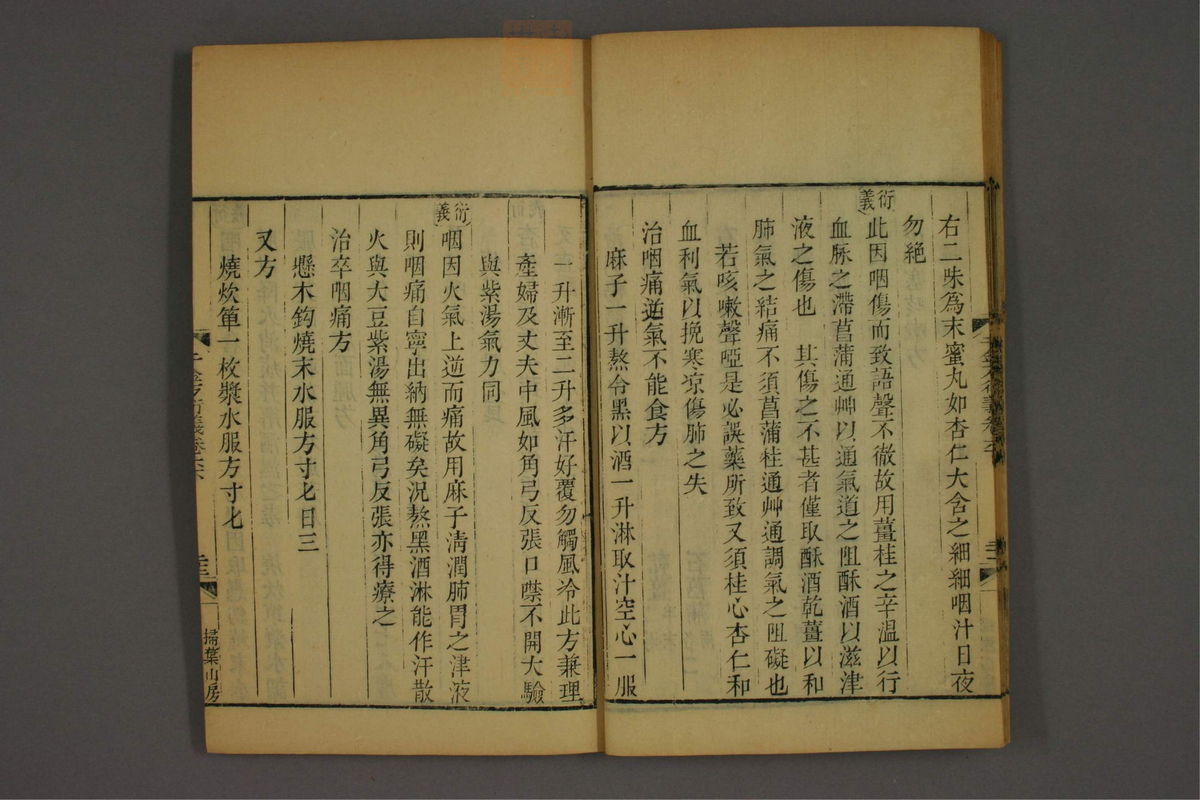 右二味爲末蜜丸如杏仁大含之細細咽汁日夜
勿絶
衍義
此因咽傷而致語聲不徹故用薑桂之辛溫以行
血脉之滯菖蒲通艸以通氣道之阻酥酒以滋津
液之傷也　其傷之不甚者僅取酥酒乾薑以和
肺氣之結痛不須菖蒲桂通艸通調氣之阻礙也
若咳嗽聲啞是必誤藥所致又須桂心杏仁和
血利氣以挽寒凉傷肺之失
治咽痛逆氣不能食方
麻子一升熬令黑以酒一升淋取汁空心一服
一升漸至二升多汗好覆勿觸風冷此方兼理
產婦及丈夫中風如角弓反張口噤不開大驗
與紫湯氣力同
衍義
咽因火氣上逆而痛故用麻子淸潤肺胃之津液
則咽痛自寧出納無礙矣況熬黑酒淋能作汗散
火與大豆紫湯無異角弓反張亦得療之
治卒咽痛方
懸木鈎燒末水服方寸匕日三
又方
燒炊箄一枚漿水服方寸匕
千金方衍義卷六
掃葉山房